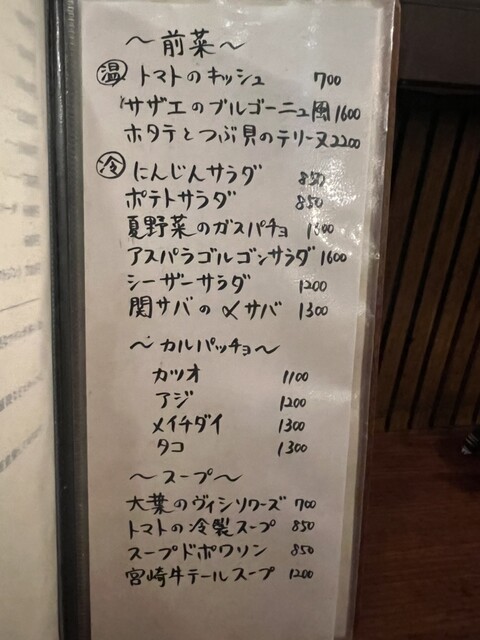 〜前菜〜
温 トマトのキッシュ 700
サザエのブルゴーニュ風 1600
ホタテとつぶ貝のテリーヌ 2200
冷 にんじんサラダ 850
ポテトサラダ 850
夏野菜のガスパチョ 1600
アスパラゴルゴンサラダ 1600
シーザーサラダ 1200
関サバの〆サバ 1300
〜カルパッチョ〜
カツオ 1100
アジ 1200
メイチダイ 1300
タコ 1300
〜スープ〜
大葉のヴィシソワーズ 700
トマトの冷製スープ 850
スープドポワソン 850
宮崎牛テールスープ 1200